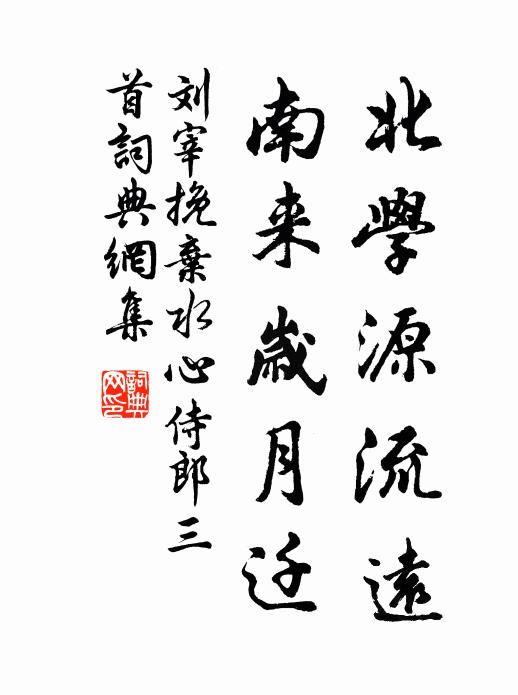 北學源流遠
南来歲月迁
刘宰挽棄水心侍郎三
首詞典網集
詞典网印